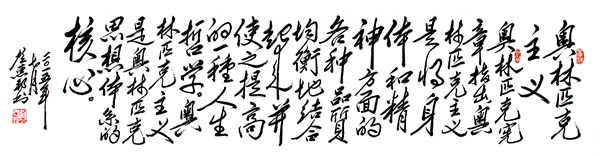 奥林匹克
主义
奥林匹克宪
章指出奥
林匹克主义
是将身
体和精
神方面的
各种品质
均衡地结合
起来并
使之提高
的一种人生
哲学。奥
林匹克主义
是奥林匹克
思想体系的
核心。
二〇一五年
七月